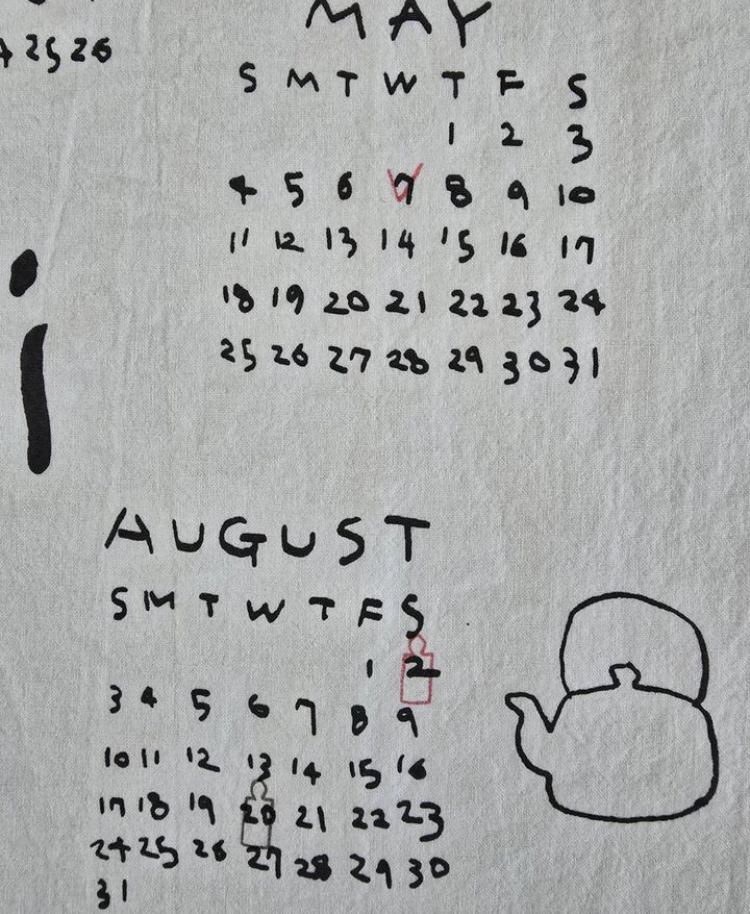 25 26
MAY
S M T W T F S
1 2 3
4 5 6 7 8 9 10
11 12 13 14 15 16 17
18 19 20 21 22 23 24
25 26 27 28 29 30 31
AUGUST
S M T W T F S
1 2
3 4 5 6 7 8 9
10 11 12 13 14 15 16
17 18 19 20 21 22 23
24 25 26 27 28 29 30
31